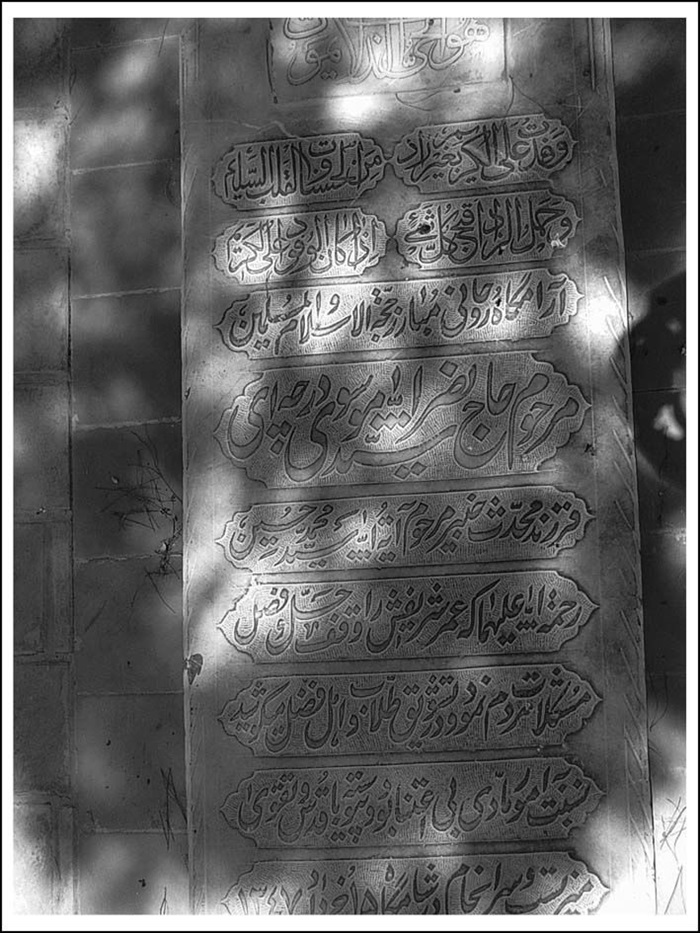 هو الحی الذی لا یموت
وفدت علی الکریم بغیر زاد
من الحسنات و القلب السلیم
و حمل الزاد اقبح کل شئ
اذا کان الوفود علی الکریم
آرامگاه روحانی مبارز حجة الاسلام و المسلمین
مرحوم حاج سید نصرالله موسوی درچه ای
فرزند محدث خبیر مرحوم آیة الله سید محمد حسین
رحمة الله علیهما که عمر شریفش را وقف حل
مشکلات مردم نمود و در تشویق طلاب و اهل فضل میکوشید
نسبت بامور مادی بی اعتنا بود و پیوسته با قدس و تقوی
میزیست و سرانجام در شامگاه ۱۵ خرداد ۱۳۴۷